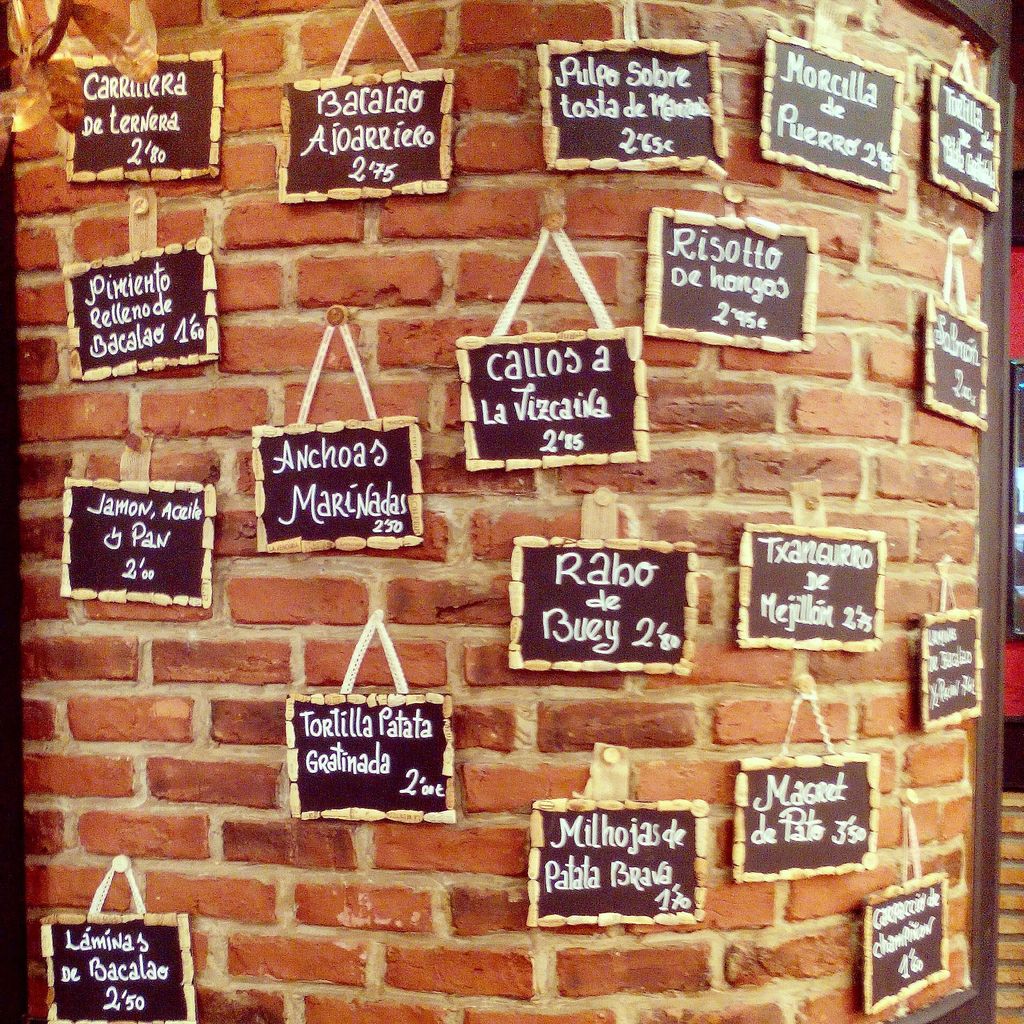 CARRILLERA
DE TERNERA
2'80
BACALAO
AJOARRIERO
2'75
Pulpo Sobre
tosta de
2'65€
MORCILLA
de
PUERRO
Tortilla
de
PIMIENTO
Relleno de
Bacalao 1'60
Risotto
De hongos
2'95€
Salmón
CALLOS A
LA VIZCAINA
2'85
ANCHOAS
MARIÑADAS
2'50
JAMON, Aceite
y PAN
2'00
Rabo
de
Buey 2'80
TXANGURRO
DE
Mejillón 2'75
TORTILLA PATATA
GRATINADA
2'00€
MAGRET
de Pato 3'50
Milhojas de
Patata BRAVA
1'70
Carpaccio de
champiñon
1'60
LÁMINAS
DE BACALAO
2'50